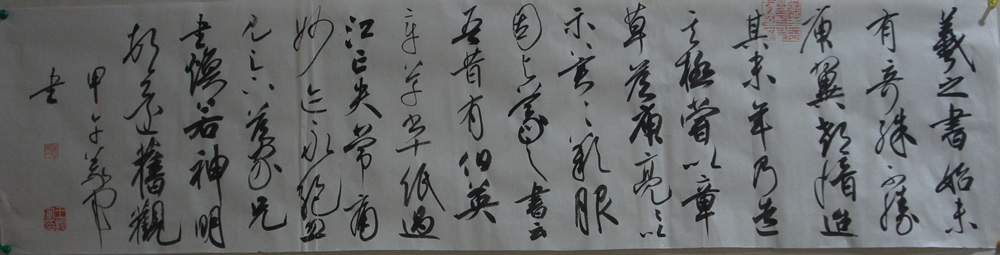 羲之書始未
有奇殊不勝
庾翼郗愔迨
其末年乃造
其極嘗以章
草答庾亮亮以
示翼翼歎服
因與羲之書云
吾昔有伯英
章草紙過
江亡失常痛
妙迹永絕忽
見足下答家兄
書煥若神明
頓還舊觀
甲午
書